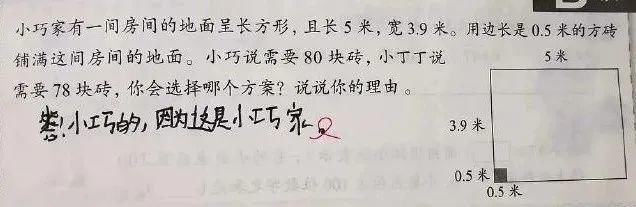 小巧家有一间房间的地面呈长方形，且长5米，宽3.9米。用边长是0.5米的方砖
铺满这间房间的地面。小巧说需要80块砖，小丁丁说
需要78块砖，你会选择哪个方案？说说你的理由。
5米
答：小巧的，因为这是小巧家。
3.9米
0.5米
0.5米